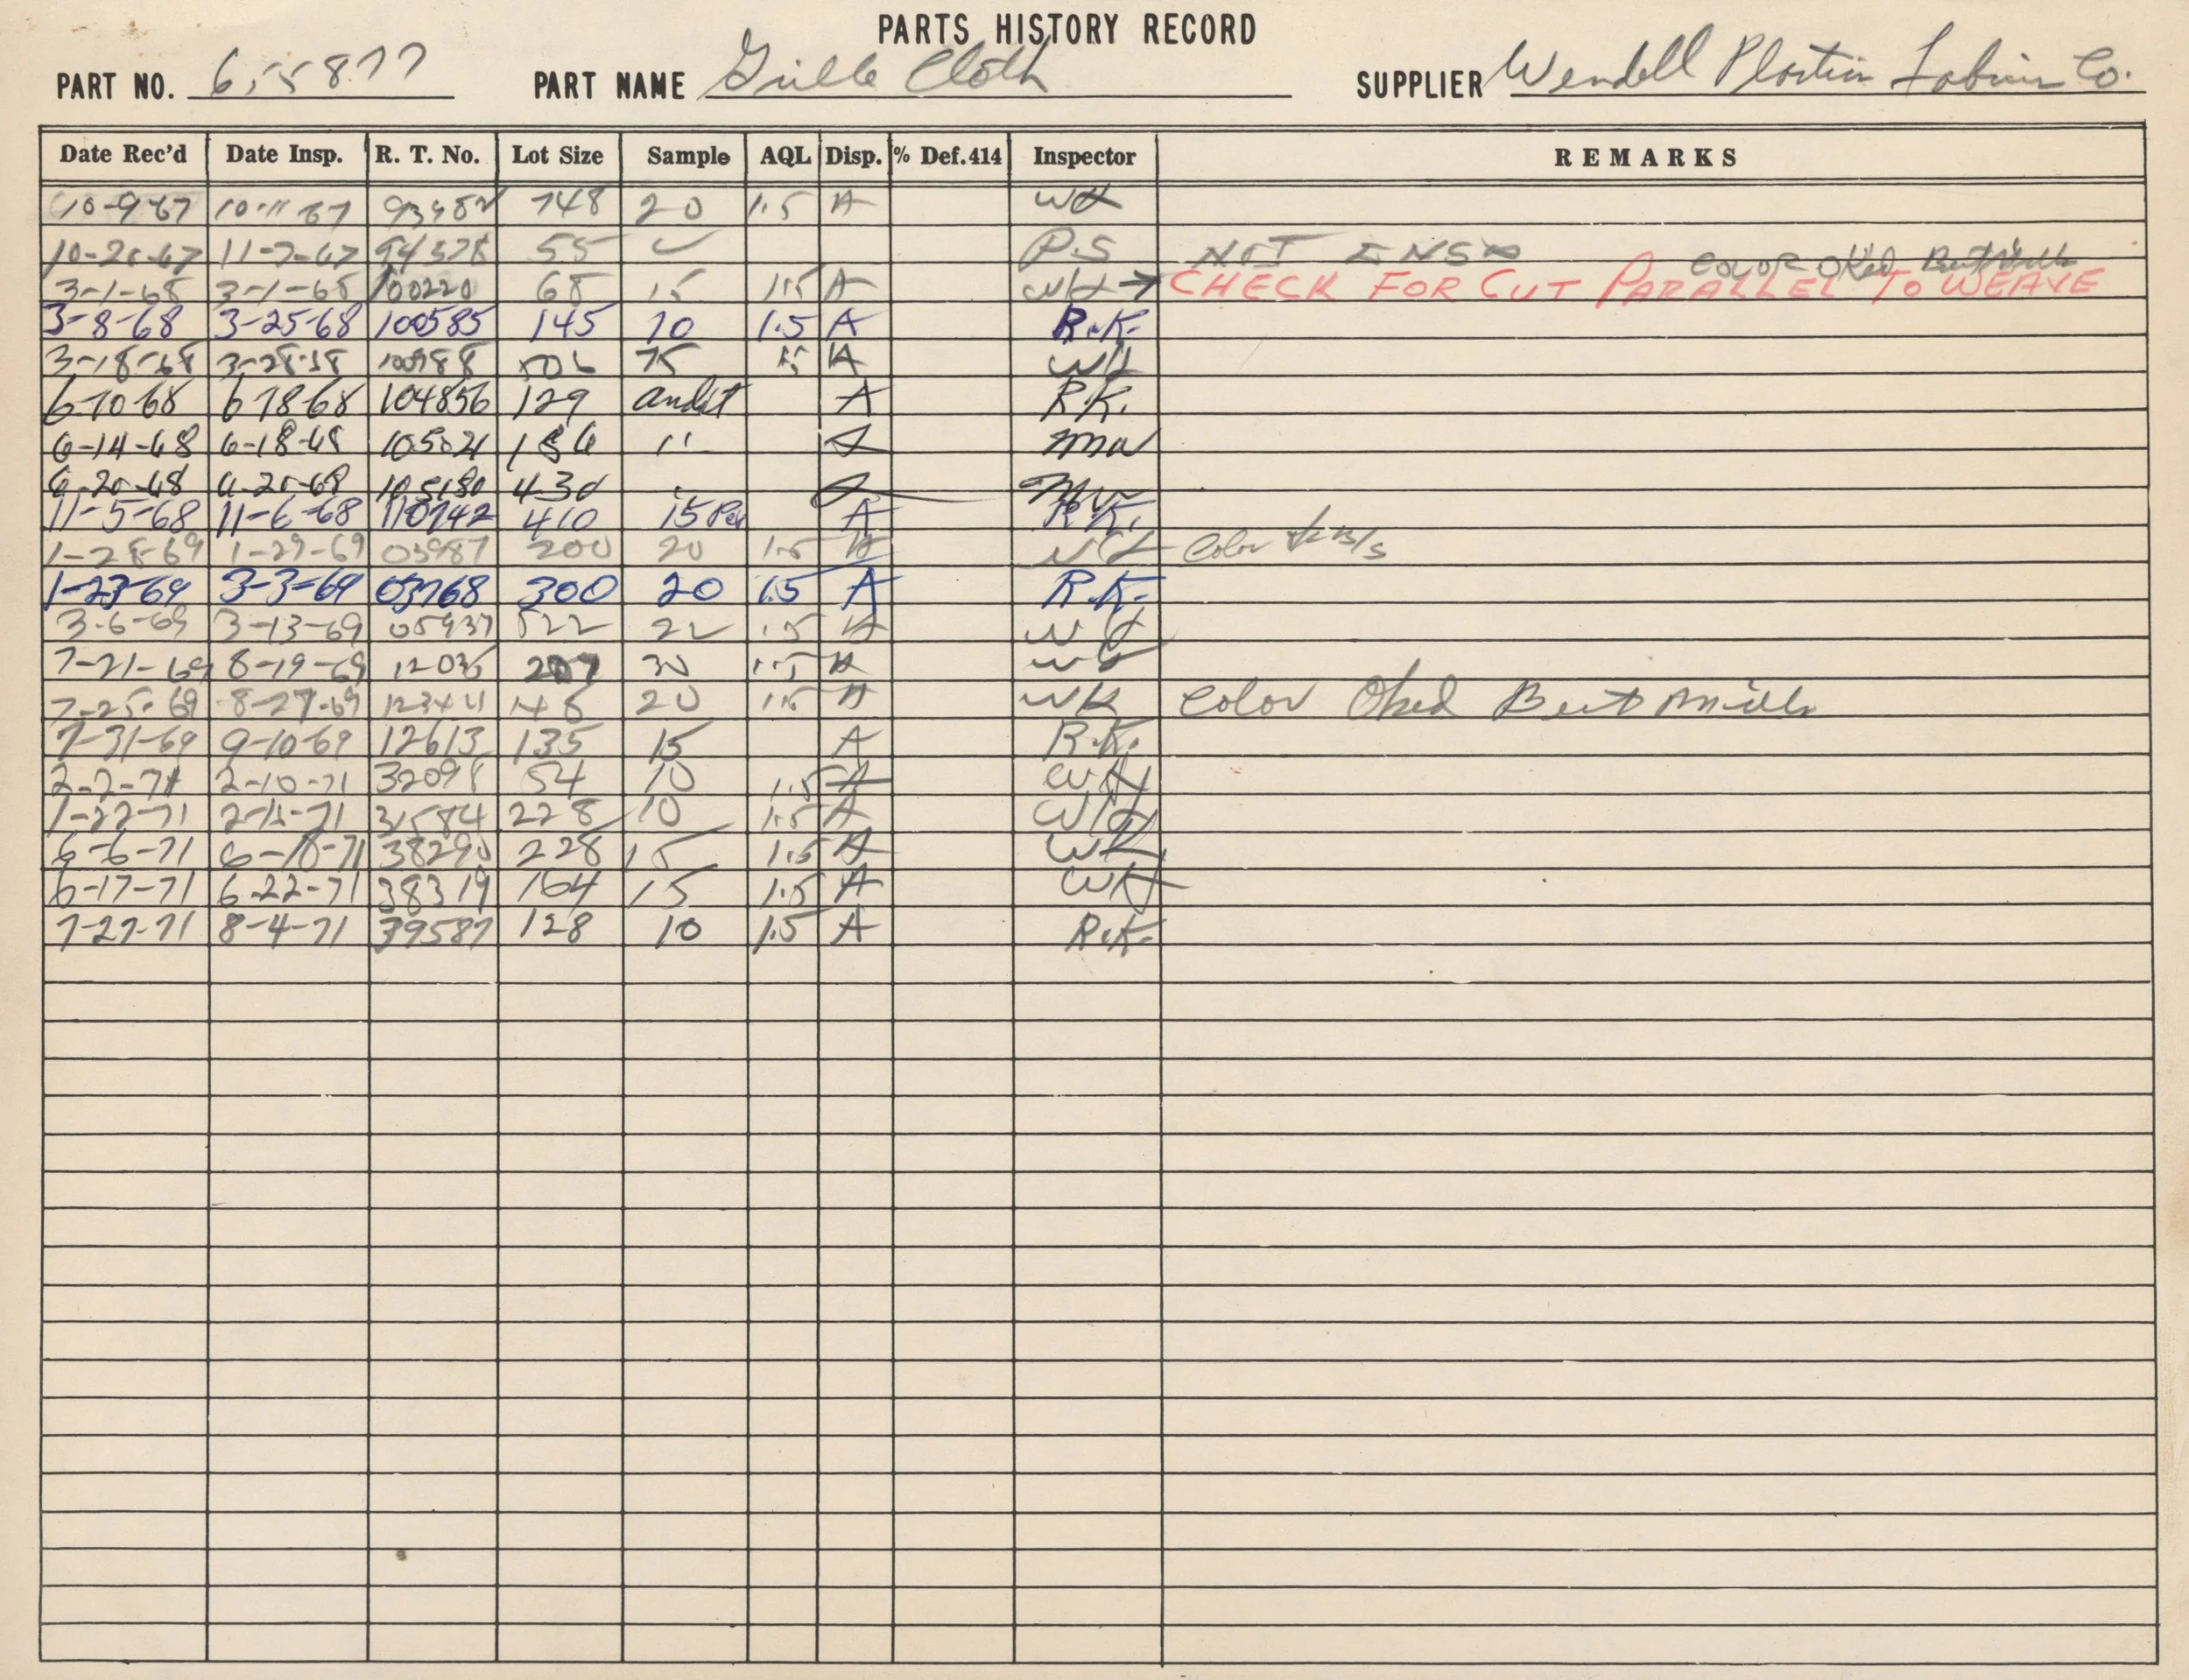 PARTS HISTORY RECORD
PART NO. 655877 PART NAME Grille Cloth SUPPLIER Wendell Plastic Fabric Co.
Date Rec'd Date Insp. R. T. No. Lot Size Sample AQL Disp. % Def.414 Inspector REMARKS
10-9-67 10-11-67 748 20 1.5 A WK
11-7-67 55 ✓ P.S NOT INSP
COLOR OKed Bert Mills
3-1-68 3-1-68 100220 68 15 1.5 A WK → CHECK FOR CUT PARALLEL TO WEAVE
3-8-68 3-25-68 100585 145 10 1.5 A R.K.
3-18-68 3-28-68 100988 75 1.5 A WK
6-10-68 6-18-68 104856 129 audit A R.K.
6-14-68 6-18-68 105021 186 " A MW
6-20-68 105180 430 A MW
11-5-68 11-6-68 110742 410 15 A R.K.
1-28-69 1-29-69 03987 200 20 1.5 A WK Color
1-23-69 3-3-69 03768 300 20 1.5 A R.K.
3-6-69 3-13-69 05937 522 22 1.5 A WK
7-21-69 8-19-69 12035 207 30 1.5 A WK
7-25-69 8-27-69 148 20 1.5 A WK Color Oked Bert Mills
7-31-69 9-10-69 12613 135 15 A R.K.
2-2-71 2-10-71 32098 54 10 1.5 A WK
1-22-71 31584 228 10 1.5 A WK
6-6-71 6-18-71 38290 228 15 1.5 A WK
6-17-71 6-22-71 38319 164 15 1.5 A WK
7-27-71 8-4-71 39587 128 10 1.5 A R.K.